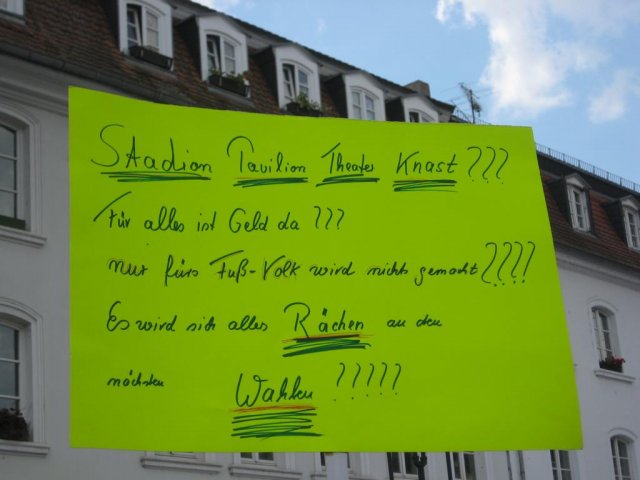 Stadion Pavilion Theater Knast ???
Für alles ist Geld da ???
nur fürs Fuß-Volk wird nichts gemacht ????
Es wird sich alles Rächen an den
nächsten Wahlen ?????